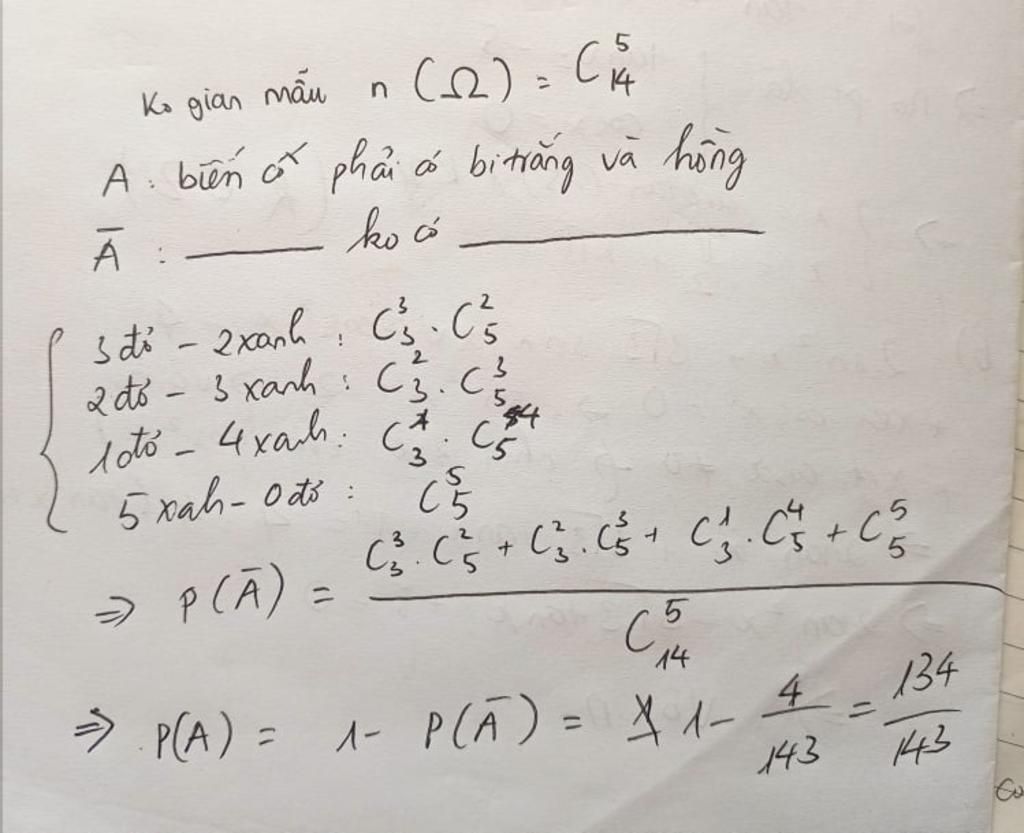 Ko gian mẫu n (Ω) = C⁵₁₄
A : biến cố phải có bi trắng và hồng
Ā : ——— ko có ———
3 đỏ - 2 xanh : C³₃ . C²₅
2 đỏ - 3 xanh : C²₃ . C³₅
1 đỏ - 4 xanh : C¹₃ . C⁴₅
5 xah - 0 đỏ : C⁵₅
⇒ P(Ā) = (C³₃ . C²₅ + C²₃ . C³₅ + C¹₃ . C⁴₅ + C⁵₅) / C⁵₁₄
⇒ P(A) = 1 - P(Ā) = 1 - 4/143 = 134/143